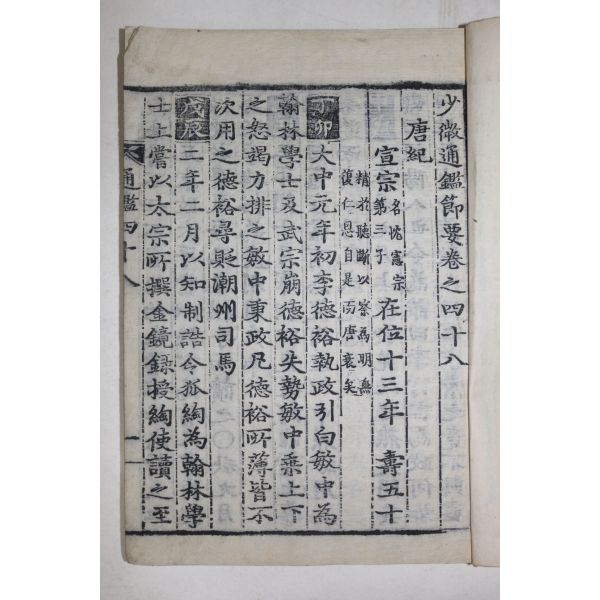 少微通鑑節要卷之四十八
唐紀
宣宗 名忱憲宗第三子 在位十三年 壽五十
精於聽斷以察爲明無復仁恩自是而唐衰矣
丁卯 大中元年初李德裕執政引白敏中為
翰林學士及武宗崩德裕失勢敏中乘上下
之怒竭力排之敏中秉政凡德裕所薄皆不
次用之德裕尋貶潮州司馬
戊辰 二年二月以知制誥令狐綯為翰林學
士上嘗以太宗所撰金鏡錄授綯使讀之至
通鑑四十八